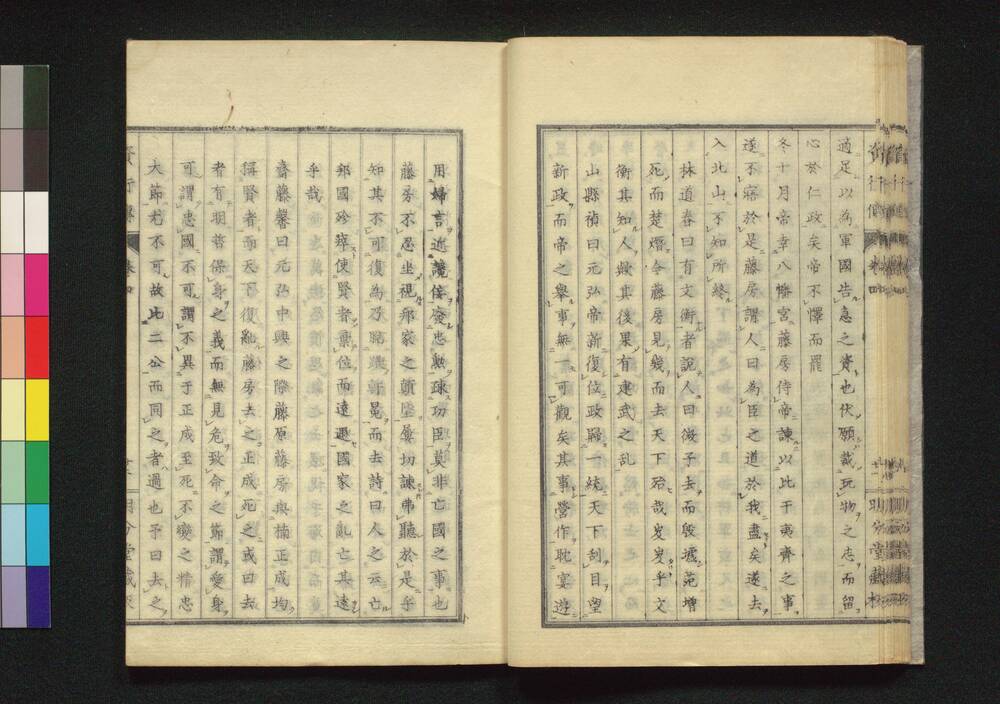 適足以為軍國告急之資也伏願裁玩物之志而留
心於仁政矣帝不懌而罷
冬十月帝幸八幡宮藤房侍帝諫以比干夷齊之事
遂不寤於是藤房謂人曰為臣之道於我盡矣遂去
入北山不知所終
林道春曰有文衡者說人曰微子去而殷墟范增
死而楚熸令藤房見幾而去天下殆哉岌岌乎文
衡其知人歟其後果有建武之乱
山縣禎曰元弘帝新復位政歸一統天下刮目望
新政而帝之舉事無一可觀矣其事營作耽宴遊
用婦言近讒侫發忠勲疎功臣莫非亡國之事也
藤房不忍坐視邦家之顛墜屢切諫弗聽於是乎
知其不可復為乃脱躧軒冕而去詩曰人之云亡
邦國殄瘁使賢者棄位而遠遯國家之亂亡其遠
乎哉
齋藤馨曰元弘中興之際藤原藤房與楠正成均
稱賢者而天下復亂藤房去之正成死之或曰去
者有明哲保身之義而無見危致命之節謂愛身
可謂忠國不可謂不異于正成至死不變之精忠
大節尤不可故比二公而同之者過也予曰去之